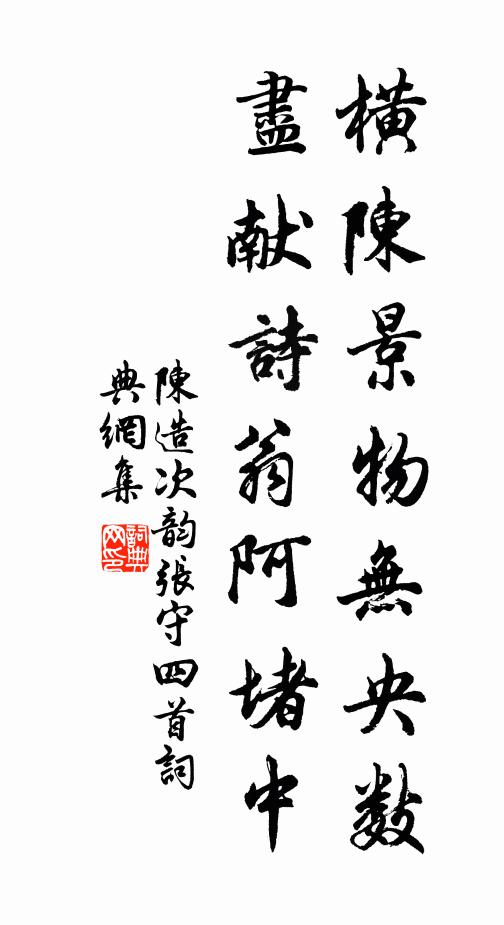 橫陳景物無央數
盡献詩翁阿堵中
陳造次韵張守四首詞
典網集
詞典網印